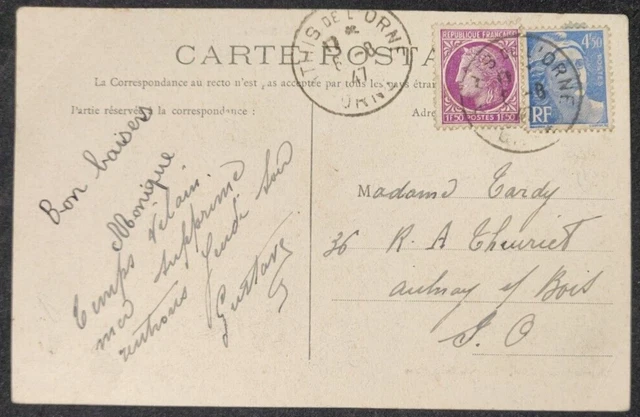 CARTE POSTA
La Correspondance au recto n'est pas acceptée par tous les pays étran
Partie réservée à la correspondance:
Adre
ATHIS DE L'ORNE
8
47
ORNE
REPUBLIQUE FRANÇAISE
1F50 POSTES 1F50
4F50
RF
L'ORNE
8
Bon baisers
Monique
Temps vilain
mer supprimé
rentrons lundi soir
Gustave
Madame Tardy
36 R. A Theuriet
aulnay s/ Bois
S. O